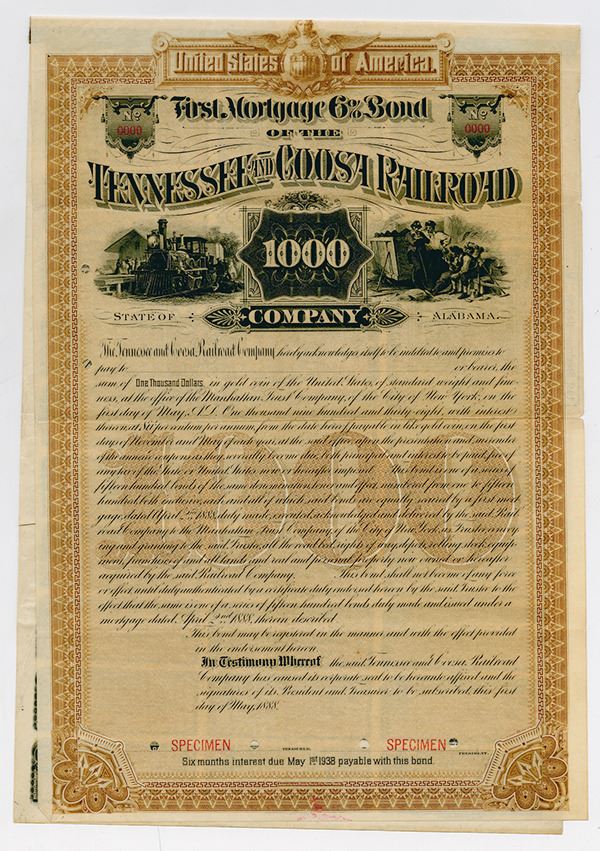 United States of America.
No 0000
First Mortgage 6% Bond
No 0000
OF THE
TENNESSEE AND COOSA RAILROAD
1000
STATE OF COMPANY ALABAMA.
The Tennessee and Coosa Railroad Company hereby acknowledges itself to be indebted to and promises to
pay to or bearer, the
sum of One Thousand Dollars, in gold coin of the United States, of standard weight and fine-
ness, at the office of the Manhattan Trust Company, of the City of New York, on the
first day of May, A.D. One thousand nine hundred and thirty-eight, with interest
thereon at six per centum per annum, from the date hereof, payable in like gold coin, on the first
days of November and May of each year, at the said office, upon the presentation and surrender
of the annexed coupons as they severally become due, both principal and interest to be paid, free of
any tax of the State or United States now or hereafter imposed. This bond is one of a series of
fifteen hundred bonds of the same denomination, tenor and effect, numbered from one to fifteen
hundred, both inclusive, each and all of which said bonds are equally secured by a first mort-
gage, dated April 2nd 1888, duly made, executed, acknowledged and delivered by the said Rail
road Company to the Manhattan Trust Company, of the City of New York, as Trustee, convey
ing and granting to the said Trustee, all the road bed, rights of way, depots, rolling stock, equip
ment, franchises and all lands and real and personal property now owned or hereafter
acquired by the said Railroad Company. This bond shall not become of any force
or effect until duly authenticated by a certificate duly endorsed hereon by the said Trustee to the
effect that the same is one of a series of fifteen hundred bonds duly made and issued under a
mortgage dated April 2nd 1888, herein described.
This bond may be registered in the manner and with the effect provided
in the endorsement hereon.
In Testimony Whereof the said Tennessee and Coosa Railroad
Company has caused its corporate seal to be hereunto affixed and the
signatures of its President and Treasurer to be subscribed, this first
day of May, 1888.
SPECIMEN TREASURER. SPECIMEN PRESIDENT.
Six months interest due May 1st 1938 payable with this bond.